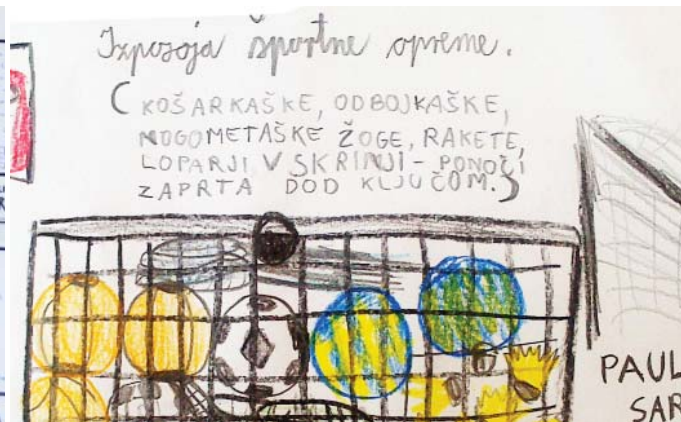 Izposoja športne opreme.
(KOŠARKAŠKE, ODBOJKAŠKE,
NOGOMETAŠKE ŽOGE, RAKETE,
LOPARJI V SKRINJI - PONOČI
ZAPRTA DOD KLJUČOM.)
PAUL
SAR